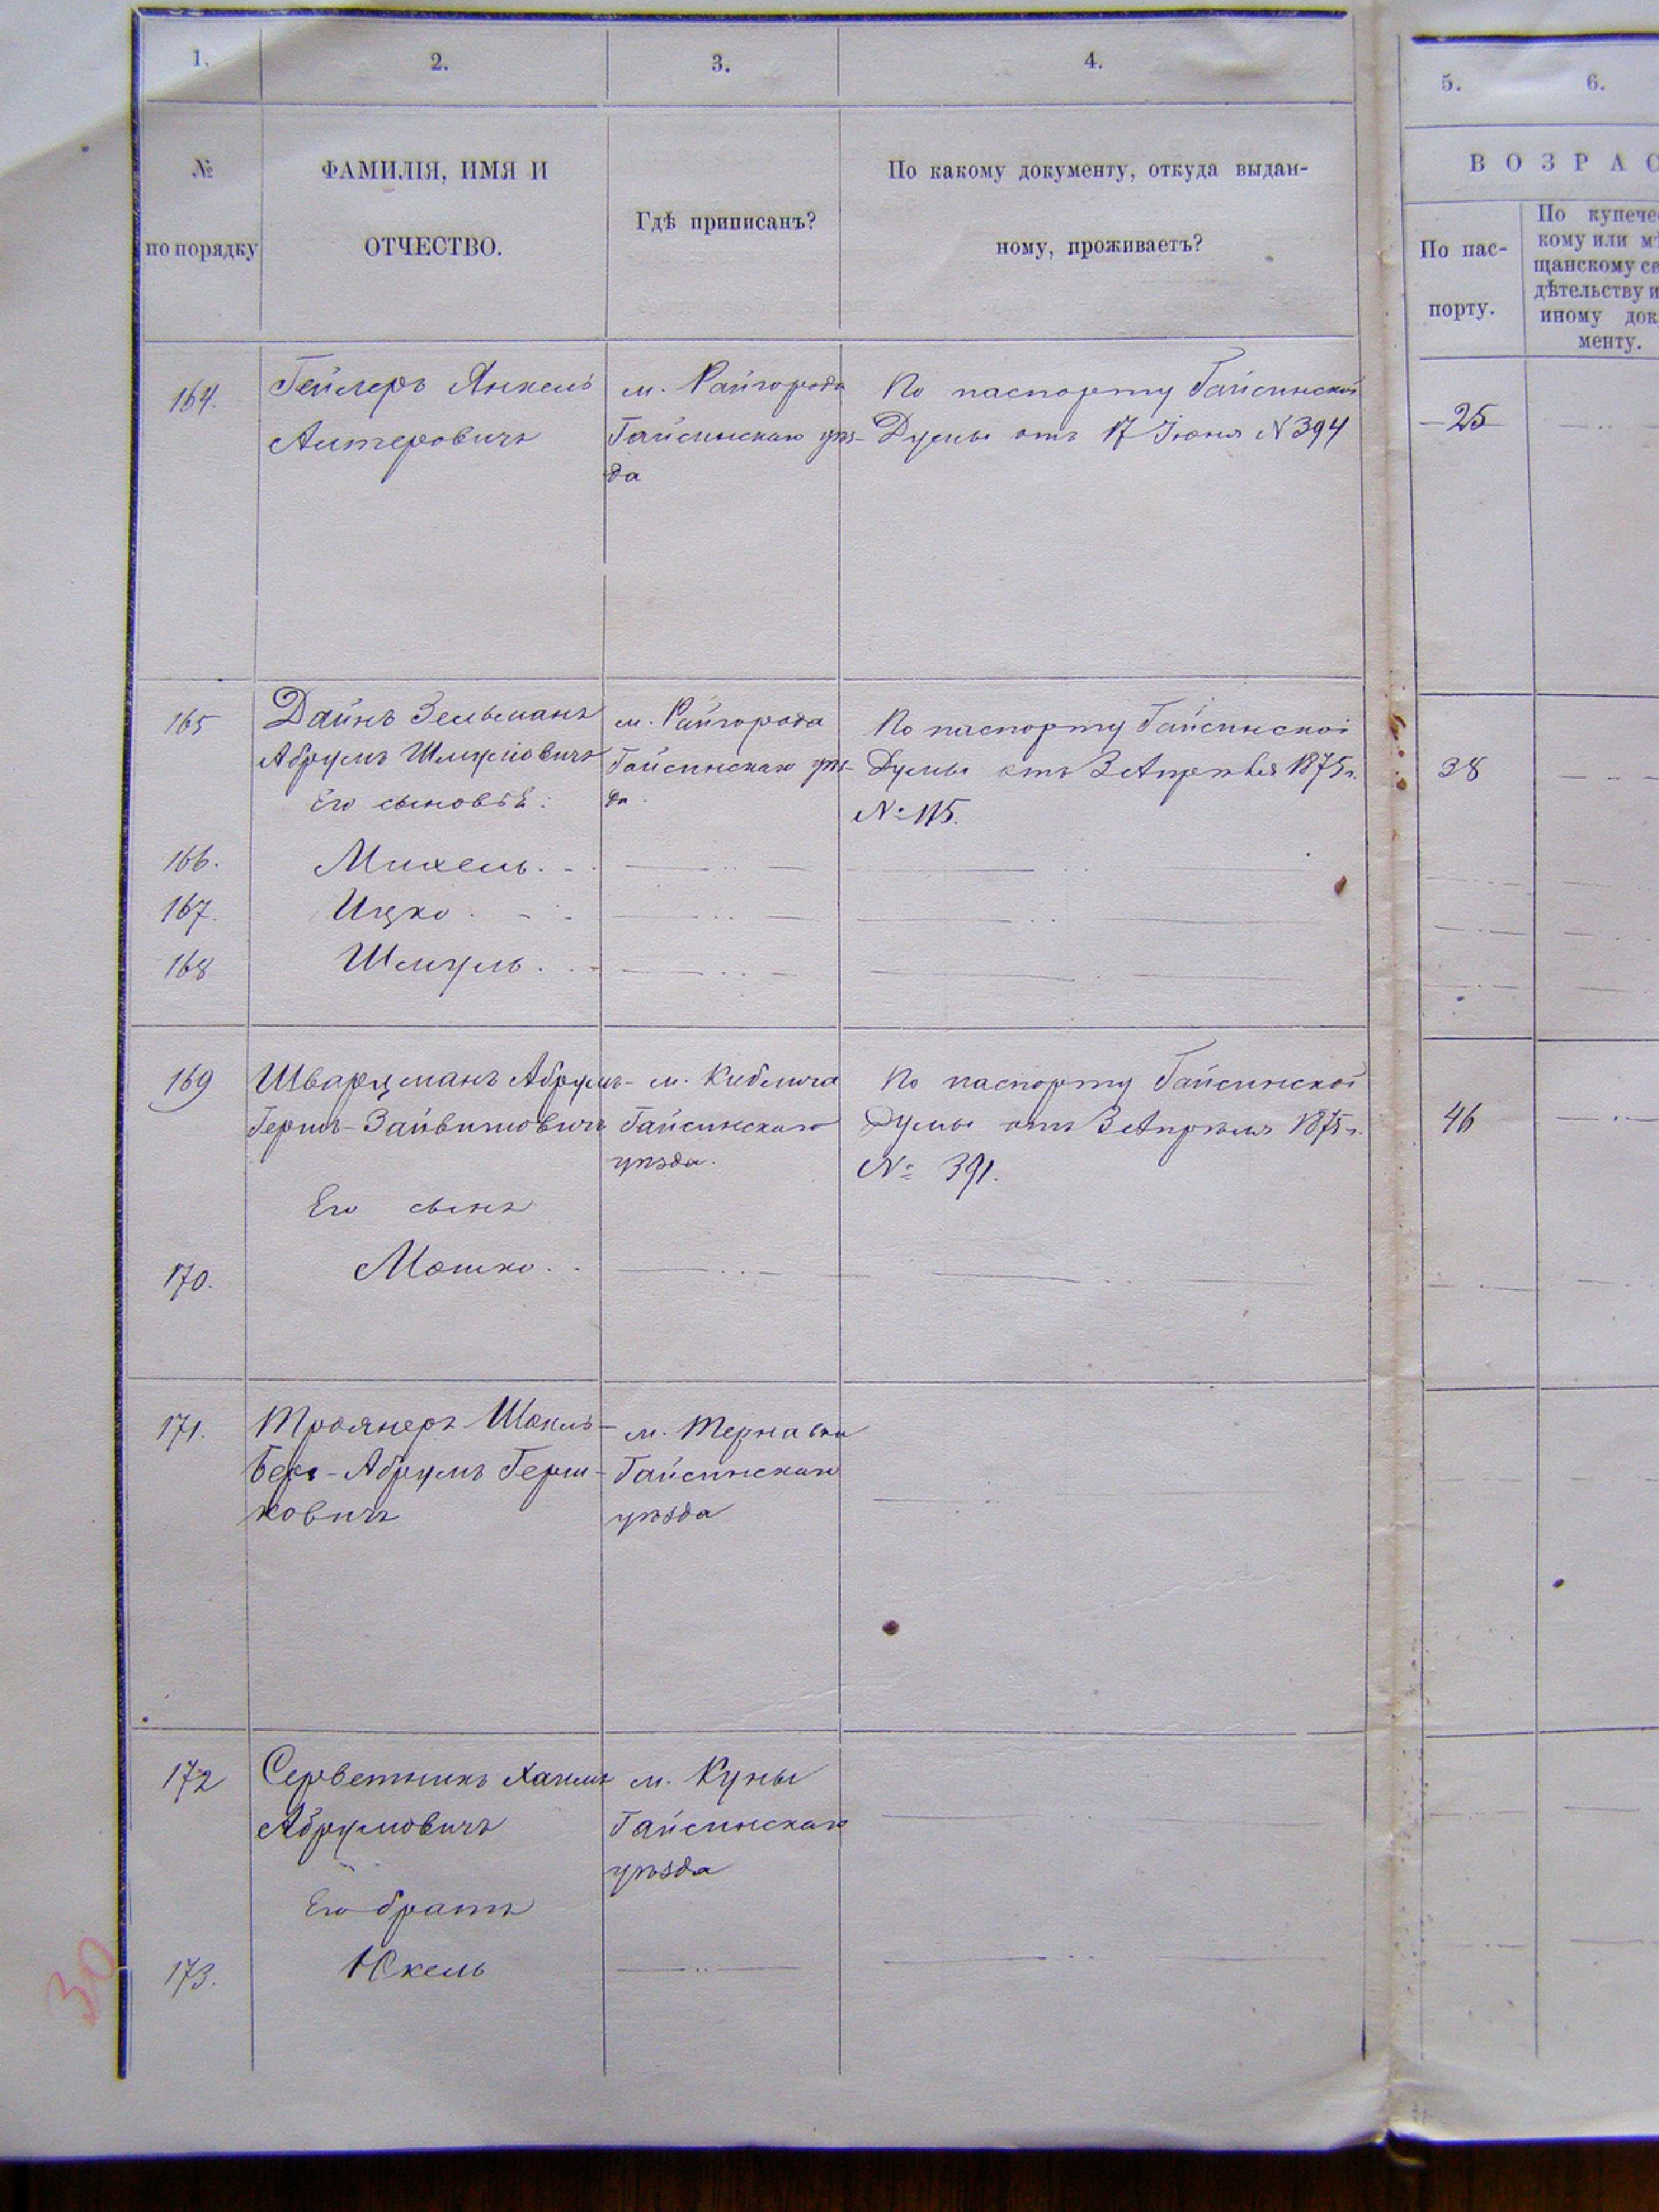 1. 2. 3. 4. 5. 6.
№ по порядку
ФАМИЛІЯ, ИМЯ И
ОТЧЕСТВО.
Гдѣ приписанъ?
По какому документу, откуда выдан-
ному, проживаетъ?
ВОЗРАС
По пас-
порту.
По купечес
кому или мѣ
щанскому св
дѣтельству и
иному док
менту.
164. Гейлеръ Янкель м. Райгорода По паспорту Гайсинской 25
Аитеровичъ Гайсинскаго уѣз- Думы отъ 17 Іюня N 394
да
165 Дайнъ Зельманъ м. Райгорода По паспорту Гайсинской
Абрумъ Шмулiовичъ Гайсинскаго уѣз- Думы отъ 3 Апрѣля 1875г. 38
Его сыновья: да. №115.
166. Михель.
167. Ицко.
168 Шмуль.
169 Шварцманъ Абрумъ- м. Киблича По паспорту Гайсинской
Гершъ-Зайвиловичъ Гайсинскаго Думы отъ 3 Апрѣля 1875г. 46
уѣзда. № 391.
Его сынъ
170. Мошко.
171. Троянеръ м. Терновки
Беръ-Абрумъ Герш- Гайсинскаго
ковичъ уѣзда
172 Серветникъ Хаимъ м. Куны
Абрумовичъ Гайсинскаго
уѣзда
Его братъ
173. Юкель
30